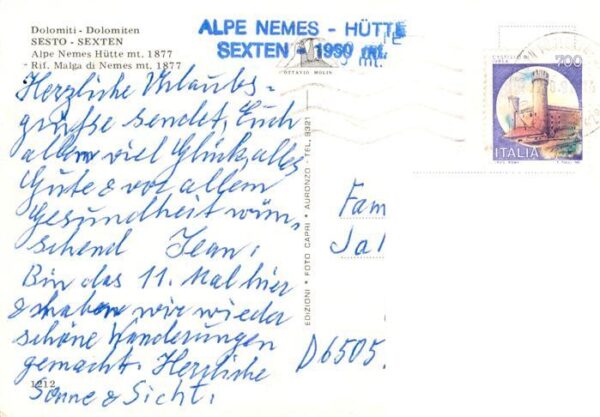 Dolomiti - Dolomiten
SESTO - SEXTEN
Alpe Nemes Hütte mt. 1877
Rif. Malga di Nemes mt. 1877
ALPE NEMES - HÜTTE
SEXTEN - 1950 mt.
OTTAVIO MOLIN
Herzliche Urlaubs-
grüsse sendet, Euch
allem viel Glück, alles
Gute & vor allem
Gesundheit wün-
schend Jean,
Bin das 11. Mal hier
& haben wir wieder
schöne Wanderungen
gemacht. Herzliche
Sonne & Sicht,
1212
EDIZIONI * FOTO CAPRI * AURONZO TEL. 9321
700
ITALIA
Fam
Jal
D6505.